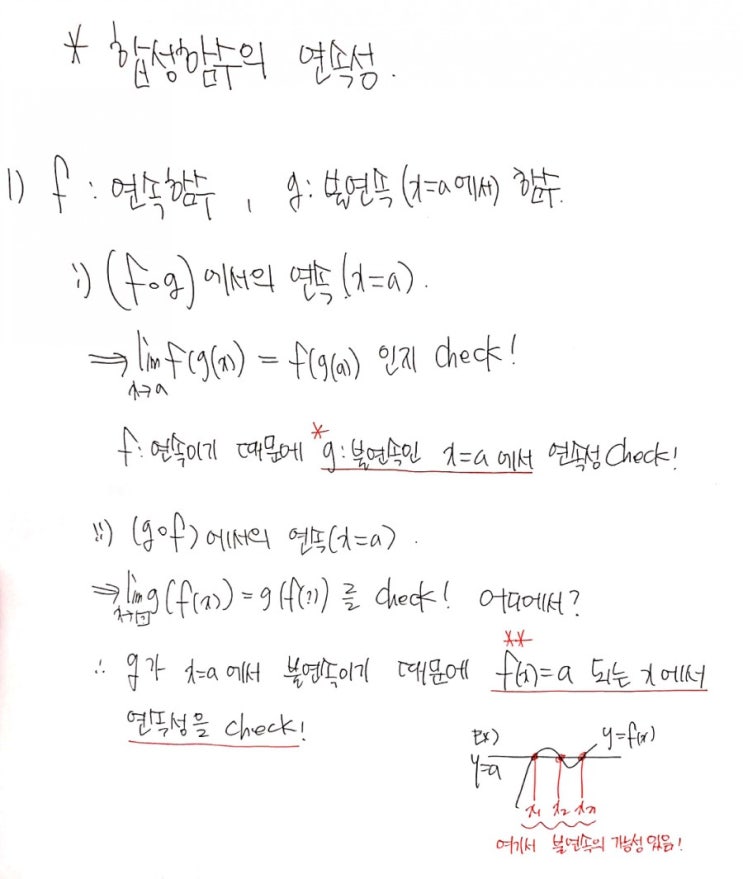 * 합성함수의 연속성.
1) f : 연속함수, g : 불연속(x=a에서) 함수.
i) (f∘g)에서의 연속(x=a).
⇒ lim f(g(x)) = f(g(a)) 인지 check!
x→a
f : 연속이기 때문에 *g : 불연속인 x=a에서 연속성 check!
ii) (g∘f)에서의 연속(x=a).
⇒ lim g(f(x)) = g(f(?)) 를 check! 어디에서?
x→?
**
∴ g가 x=a에서 불연속이기 때문에 f(x)=a 되는 x에서
연속성을 check!
Ex) y=f(x)
y=a
x₁ x₂ x₃
여기서 불연속의 가능성 있음!